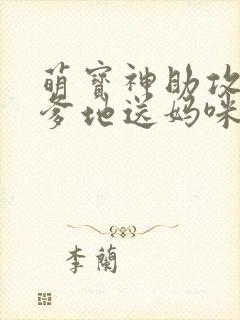 萌寶神助攻
爹地送媽咪
李蘭